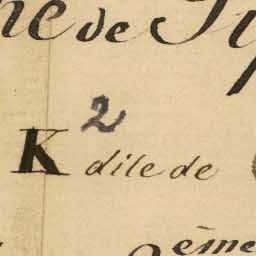 ne de
2
K dile de
ème